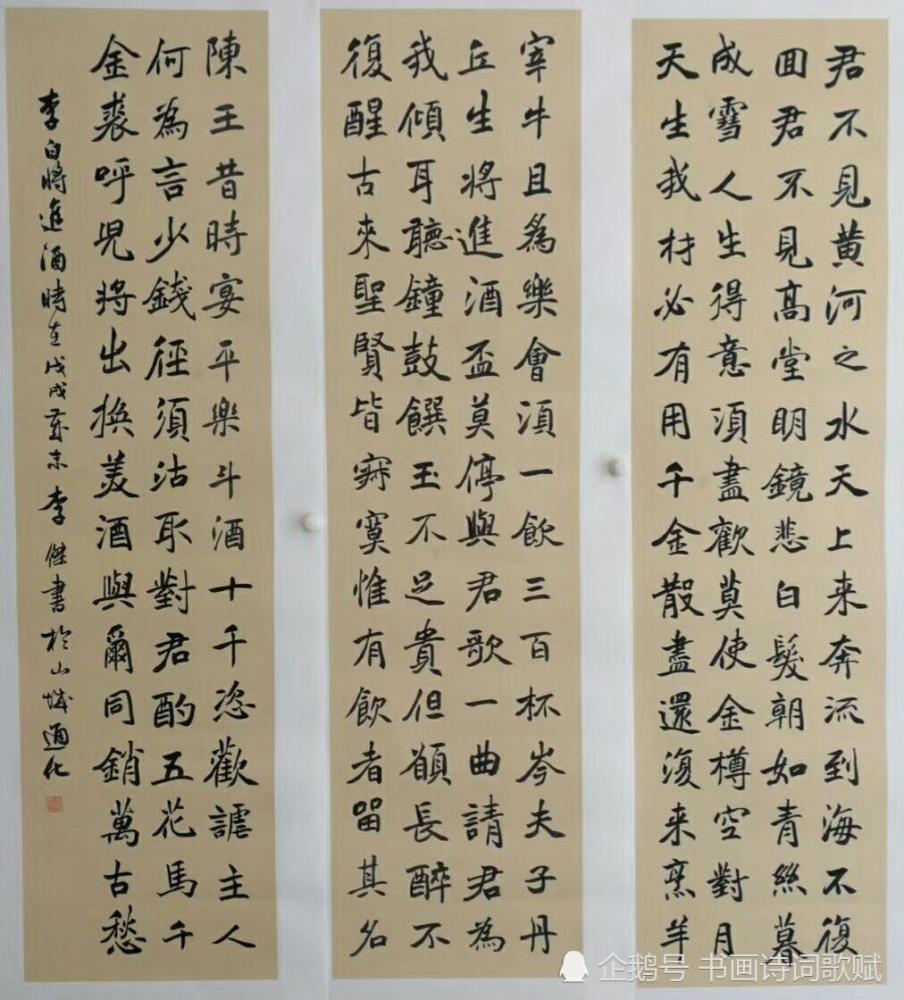 君不見黄河之水天上来奔流到海不復
回君不見高堂明鏡悲白髮朝如青絲暮
成雪人生得意須盡歡莫使金樽空對月
天生我材必有用千金散盡還復来烹羊
宰牛且為樂會須一飲三百杯岑夫子丹
丘生將進酒盃莫停與君歌一曲請君為
我傾耳聽鐘鼓饌玉不足貴但願長醉不
復醒古來聖賢皆寂寞惟有飲者留其名
陳王昔時宴平樂斗酒十千恣歡謔主人
何為言少錢徑須沽取對君酌五花馬千
金裘呼兒將出換美酒與爾同銷萬古愁
李白將進酒時在戊戌歲末李傑書於山城通化
企鹅号 书画诗词歌赋